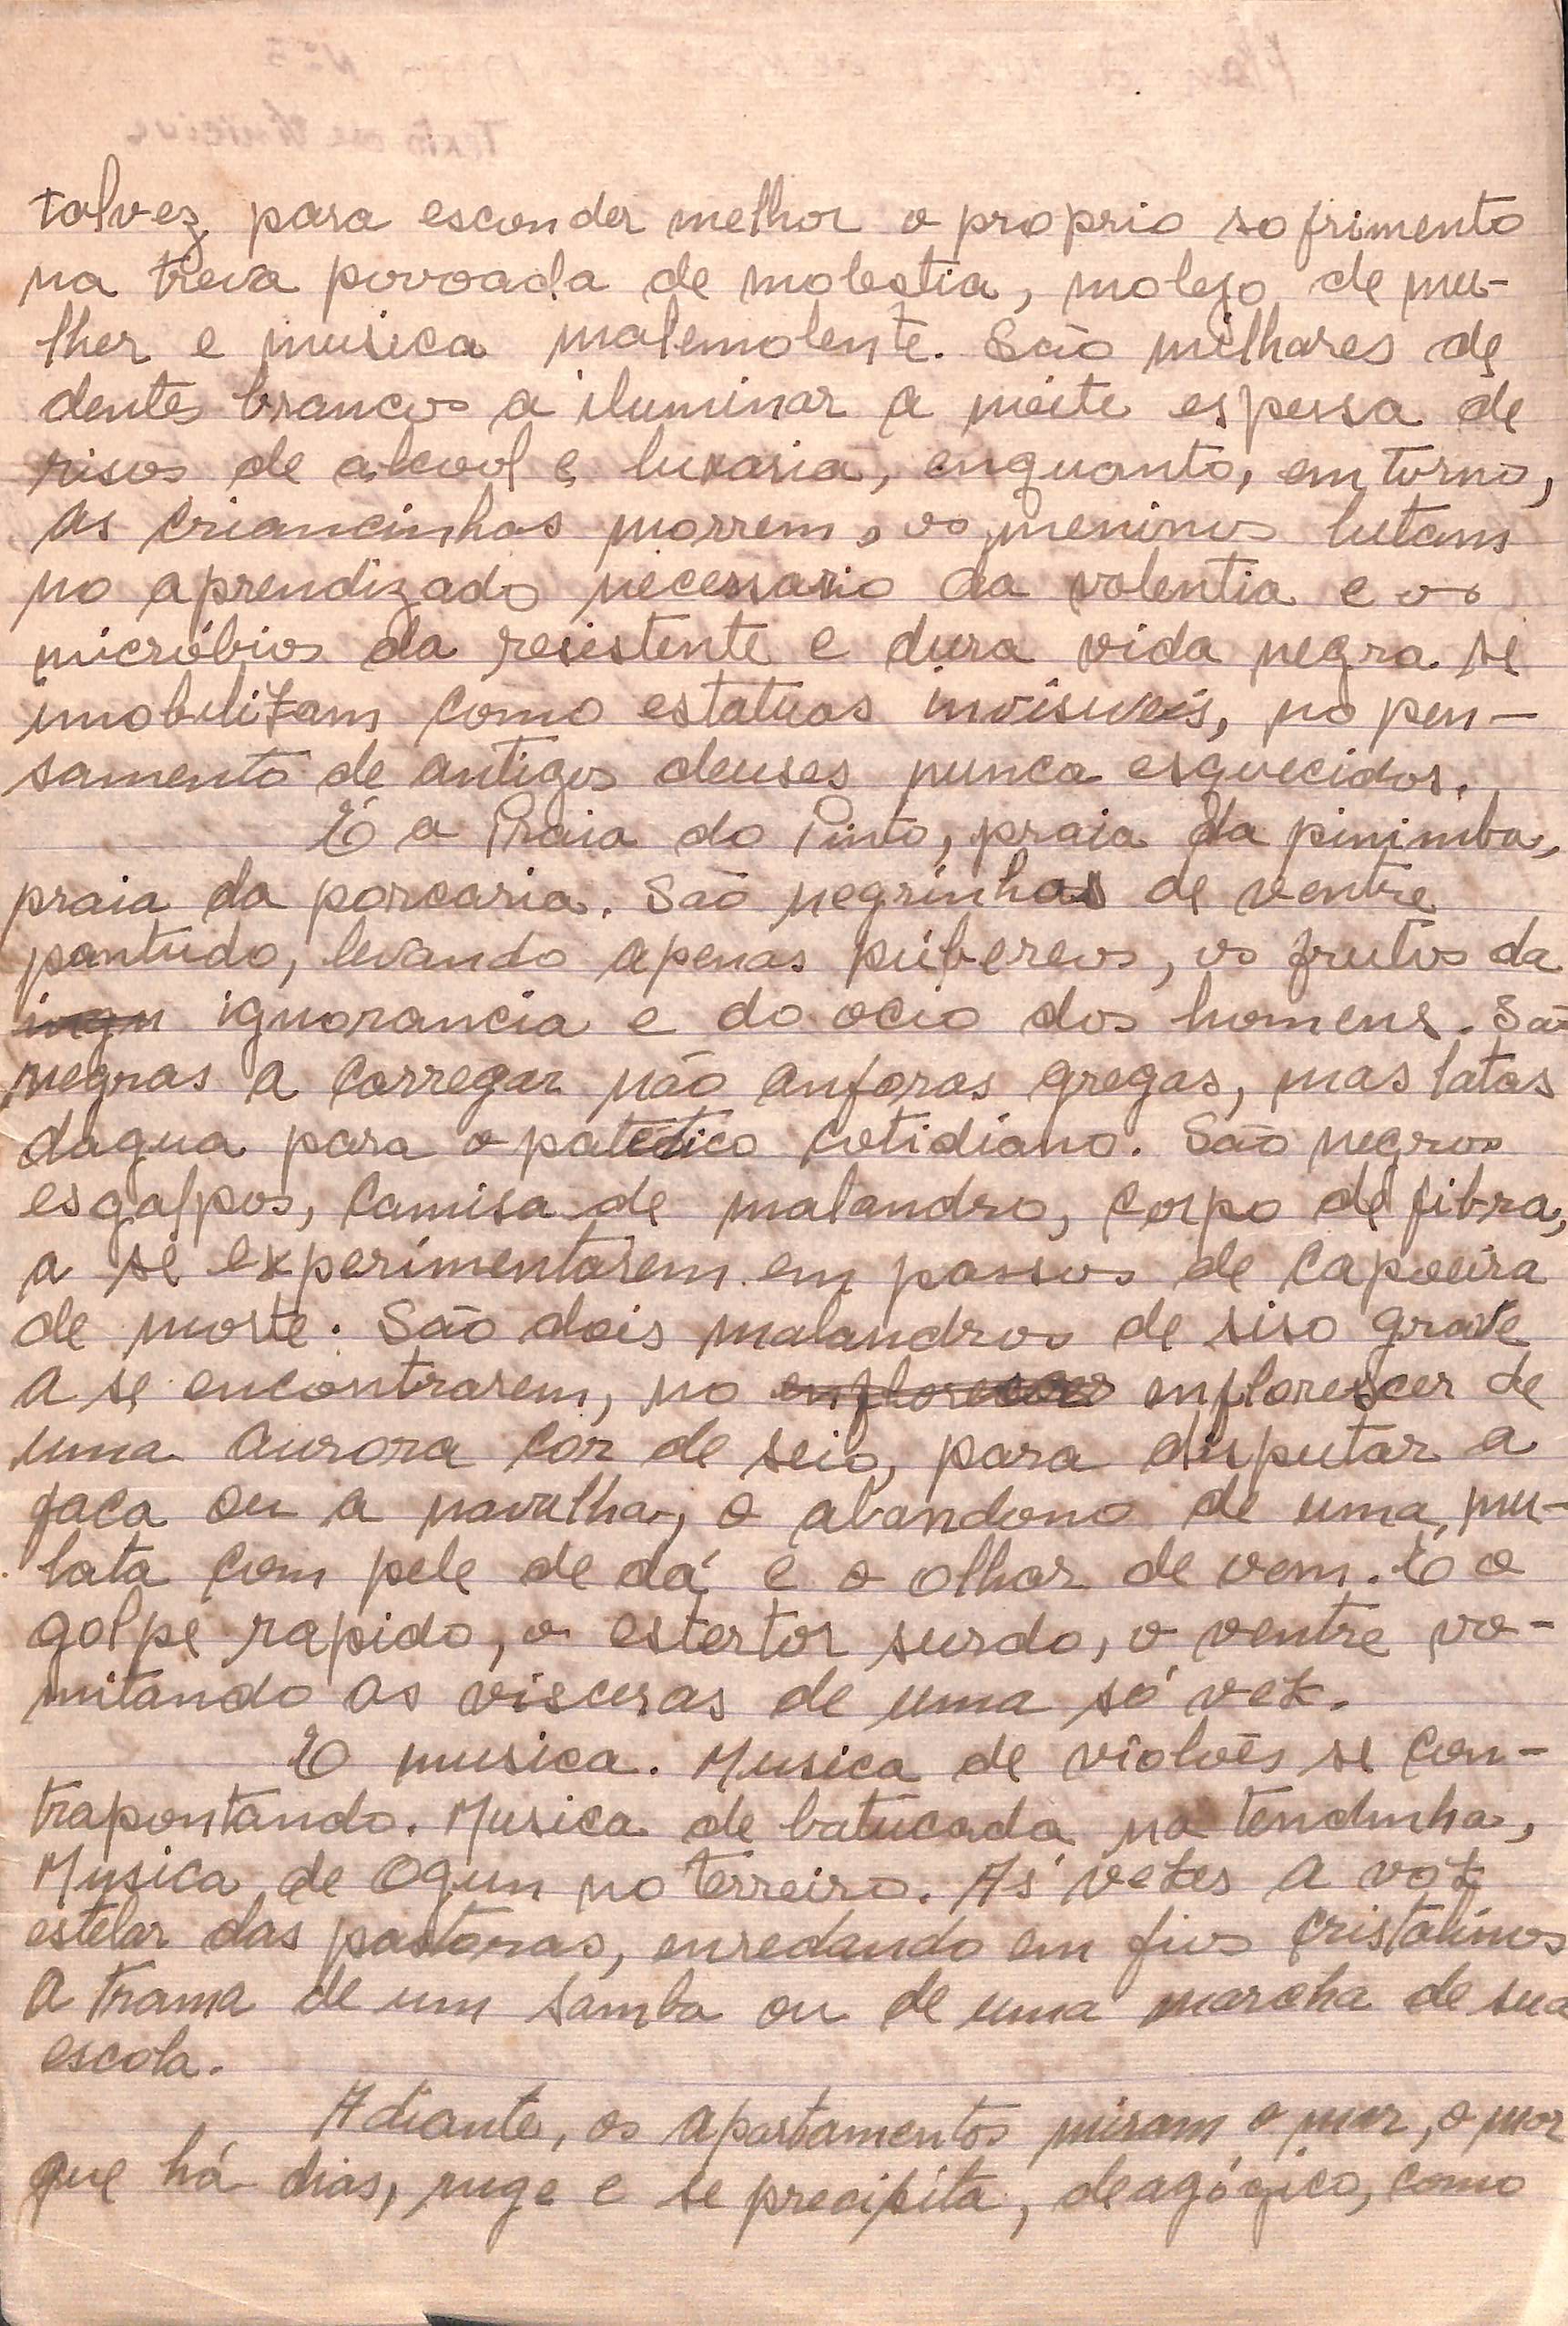 talvez para esconder melhor o proprio sofrimento
na treva povoada de molestia, molejo de mu-
lher e musica malemolente. São milhares de
dentes brancos a iluminar a noite espessa de
risos de alcool e luxaria, enquanto, em torno,
as criancinhas morrem, os meninos lutam
no aprendizado necessario da valentia e os
micróbios da resistente e dura vida negra se
imobilizam como estatuas invisiveis, no pen-
samento de antigos deuses nunca esquecidos.
É a Praia do Pinto, praia da pinimba,
praia da porcaria. São negrinhas de ventre
pantudo, levando apenas púbereos, os frutos da
ignorancia e do ocio dos homens. São
negras a carregar não anforas gregas, mas latas
dagua para o patético cotidiano. São negros
esgalpos, camisa de malandro, corpo de fibra,
a se experimentarem em passos de capoeira
de morte. São dois malandros de siso grave
a se encontrarem, no enflorescer enflorescer de
uma aurora cor de seio, para disputar a
faca ou a navalha, o abandono de uma mu-
lata com pele de dá e o olhar de vem. É o
golpe rapido, o estertor surdo, o ventre vo-
mitando as visceras de uma só vez.
É musica. Musica de violões se con-
trapontando. Musica de batucada na tendinha,
Musica de Ogun no terreiro. Ás vezes a voz
estelar das pastoras, enredando em fios cristalinos
a trama de um samba ou de uma marcha de sua
escola.
Adiante, os apartamentos miram o mar, o mar
que há dias, ruge e se precipita, deagógico, como